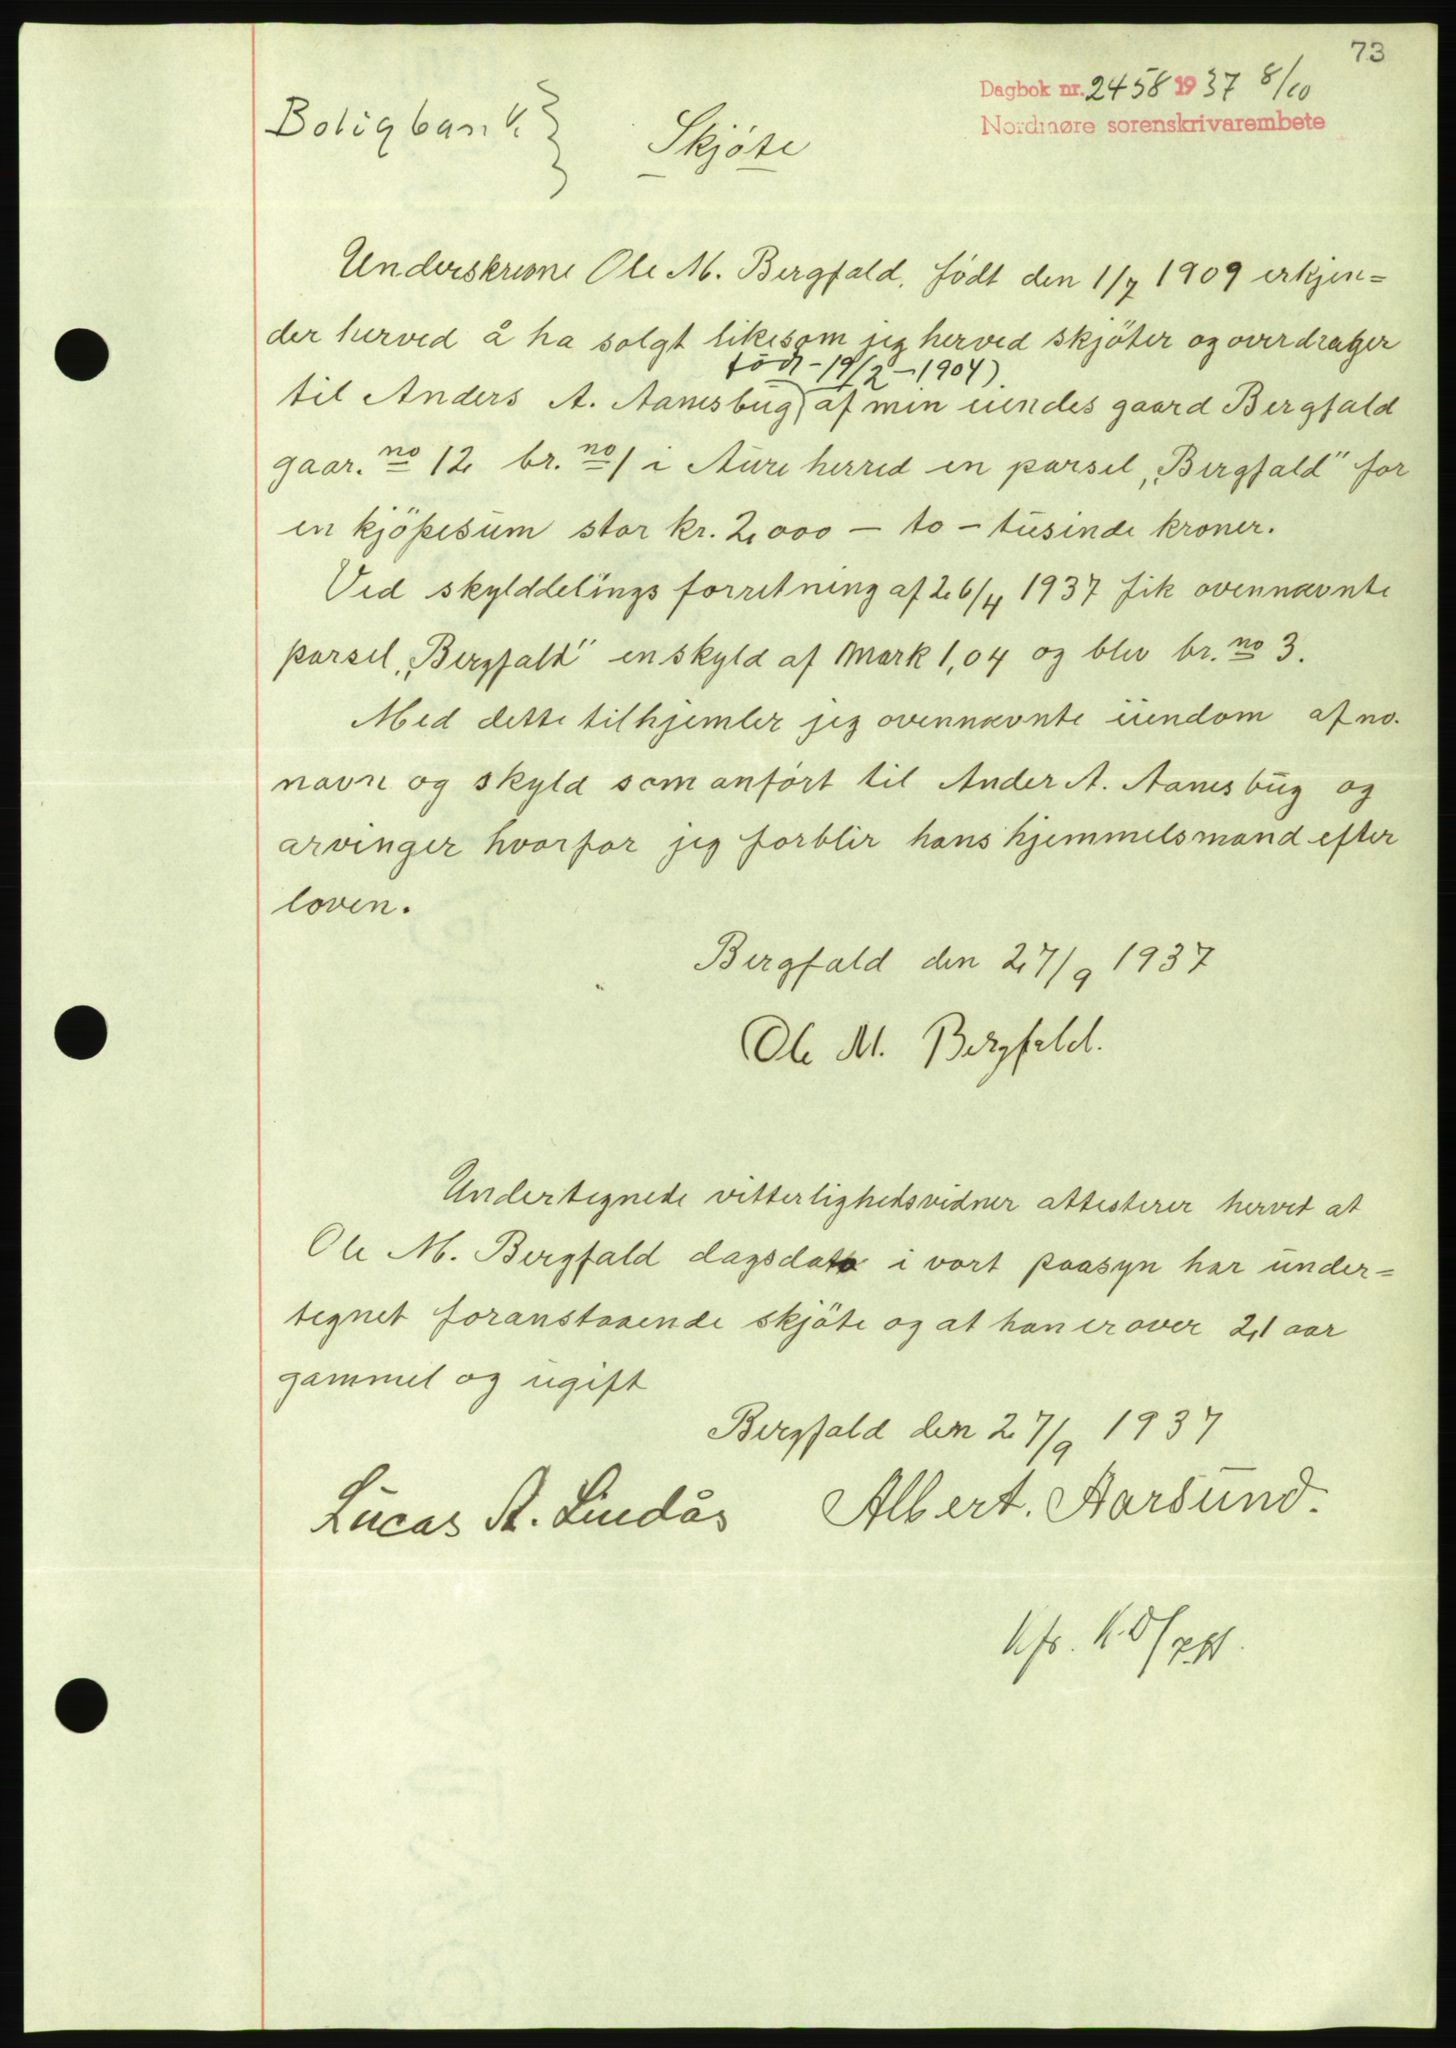 73
Dagbok nr. 2458 1937 8/10
Nordmøre sorenskrivarembete
Boligbank.
Skjöte
Underskrevne Ole M. Bergfald, födt den 1/7 1909 erkjen=
der herved å ha solgt likesom jeg herved skjöter og overdrager
född - 19/2 - 1904).
til Anders A. Aanesbug af min eiendes gaard Bergfald
gaar. no 12 br. no 1 i Aure herred en parsel „Bergfald" for
en kjöpesum stor kr. 2,000 — to - tusinde kroner.
Ved skylddelings forretning af 26/4 1937 fik ovennævnte
parsel „Bergfald" en skyld af Mark 1,04 og blev br. no 3.
Med dette tilhjemler jeg ovennævnte eiendom af no.
navn og skyld som anfört til Ander A. Aanesbug og
arvinger hvorfor jeg forblir hans hjemmelsmand efter
loven.
Bergfald den 27/9 1937
Ole M. Bergfald.
Undertegnede vitterlighedsvidner attesterer hervet at
Ole M. Bergfald dagsdato i vort paasyn har under=
tegnet foranstaaende skjöte og at han er over 21 aar
gammel og ugift
Bergfald den 27/9 1937
Lucas A. Lindås Albert. Aarsund.